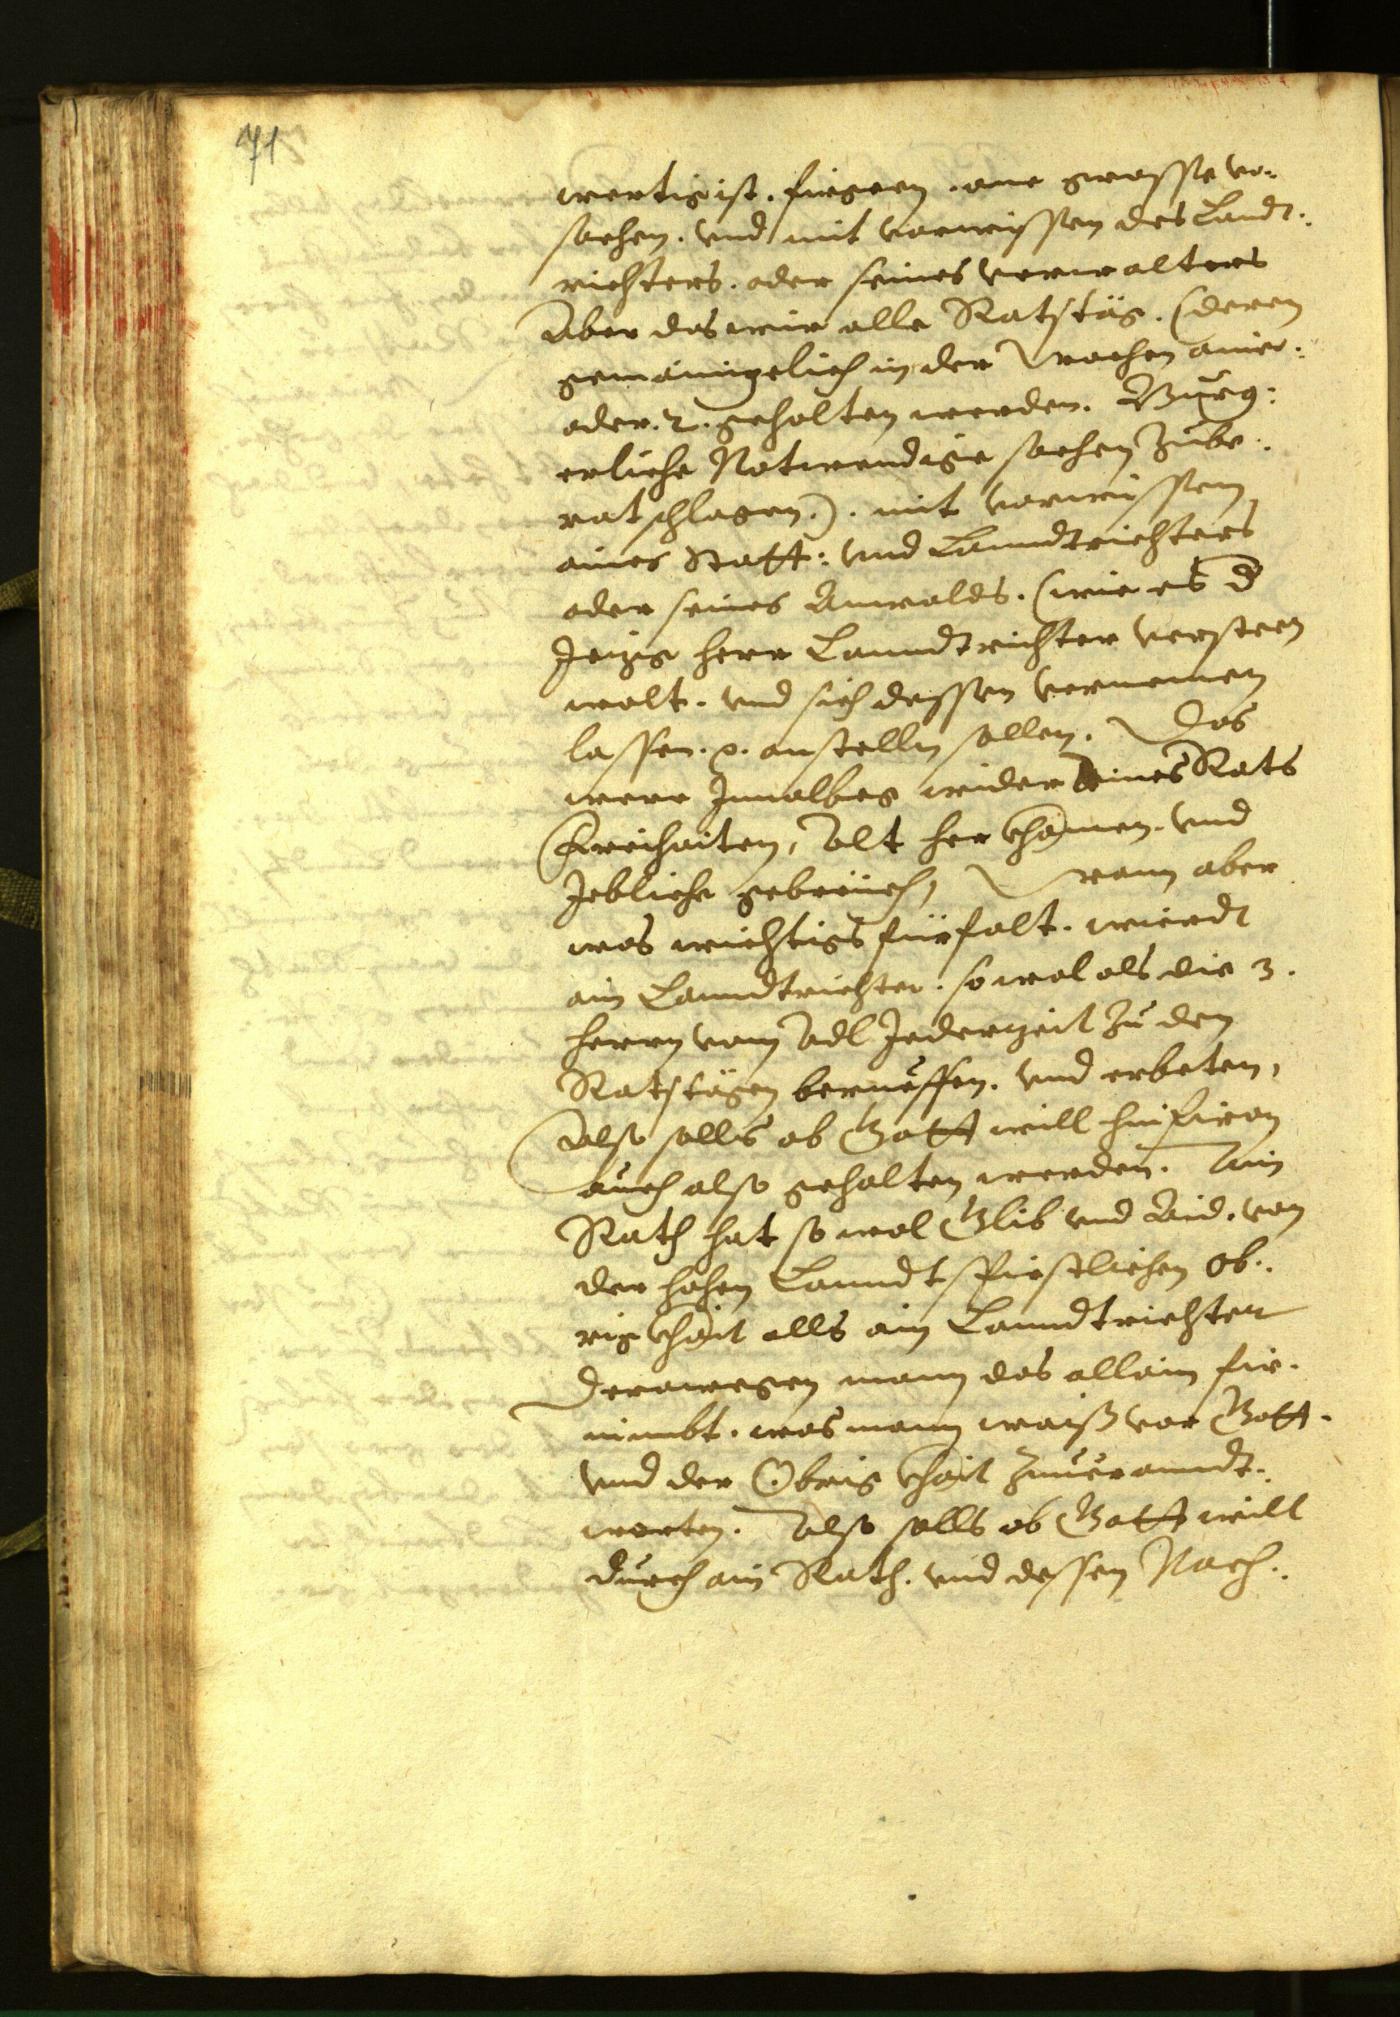 71
wertig ist. fürgeen. one grosse vr-
sachen. vnd mit vorwissen des Landt-
richters. oder seines verwalters
Aber das wir alle Ratstäg. (deren
gemainigelich in der wochen ainer.
oder. 2. gehalten werden. Burg:
erliche Notwendige sachen zube.
ratschlagen.). mit vorwissen
aines Statt: vnd Lanndtrichters
oder seines Anwalds. (wie es d
Jezig herr Lanndtrichter versteen
wolt. vnd sich dessen vernemen
lassen. anstellen sollen. Das
were Jnnalbeg wider aines Rats
Freihaiten, Alt herkhomen. vnd
Jebliche gebreüch, Wann aber
was wichtigs fürfalt. wierdt
ain Lanndtrichter. so wol als die 3.
herrn vom Adl Jederzeit zu den
Ratstägen beruëffen. vnd erbeten,
Also solls ob Gott will hinfiron
auch also gehalten werden. Ain
Rath hat so wol Glib vnd Aid. von
der hohen Lanndtsfirstlichen Ob:
rigkhait alls ain Lanndtrichter
Derowegen mann das allain fir.
nimbt. was mann waiß vor Gott.
vnd der Obrigkhait zuueranndt:
worten. Also solls ob Gott will
durch ain Rath. vnd dessen Nach: